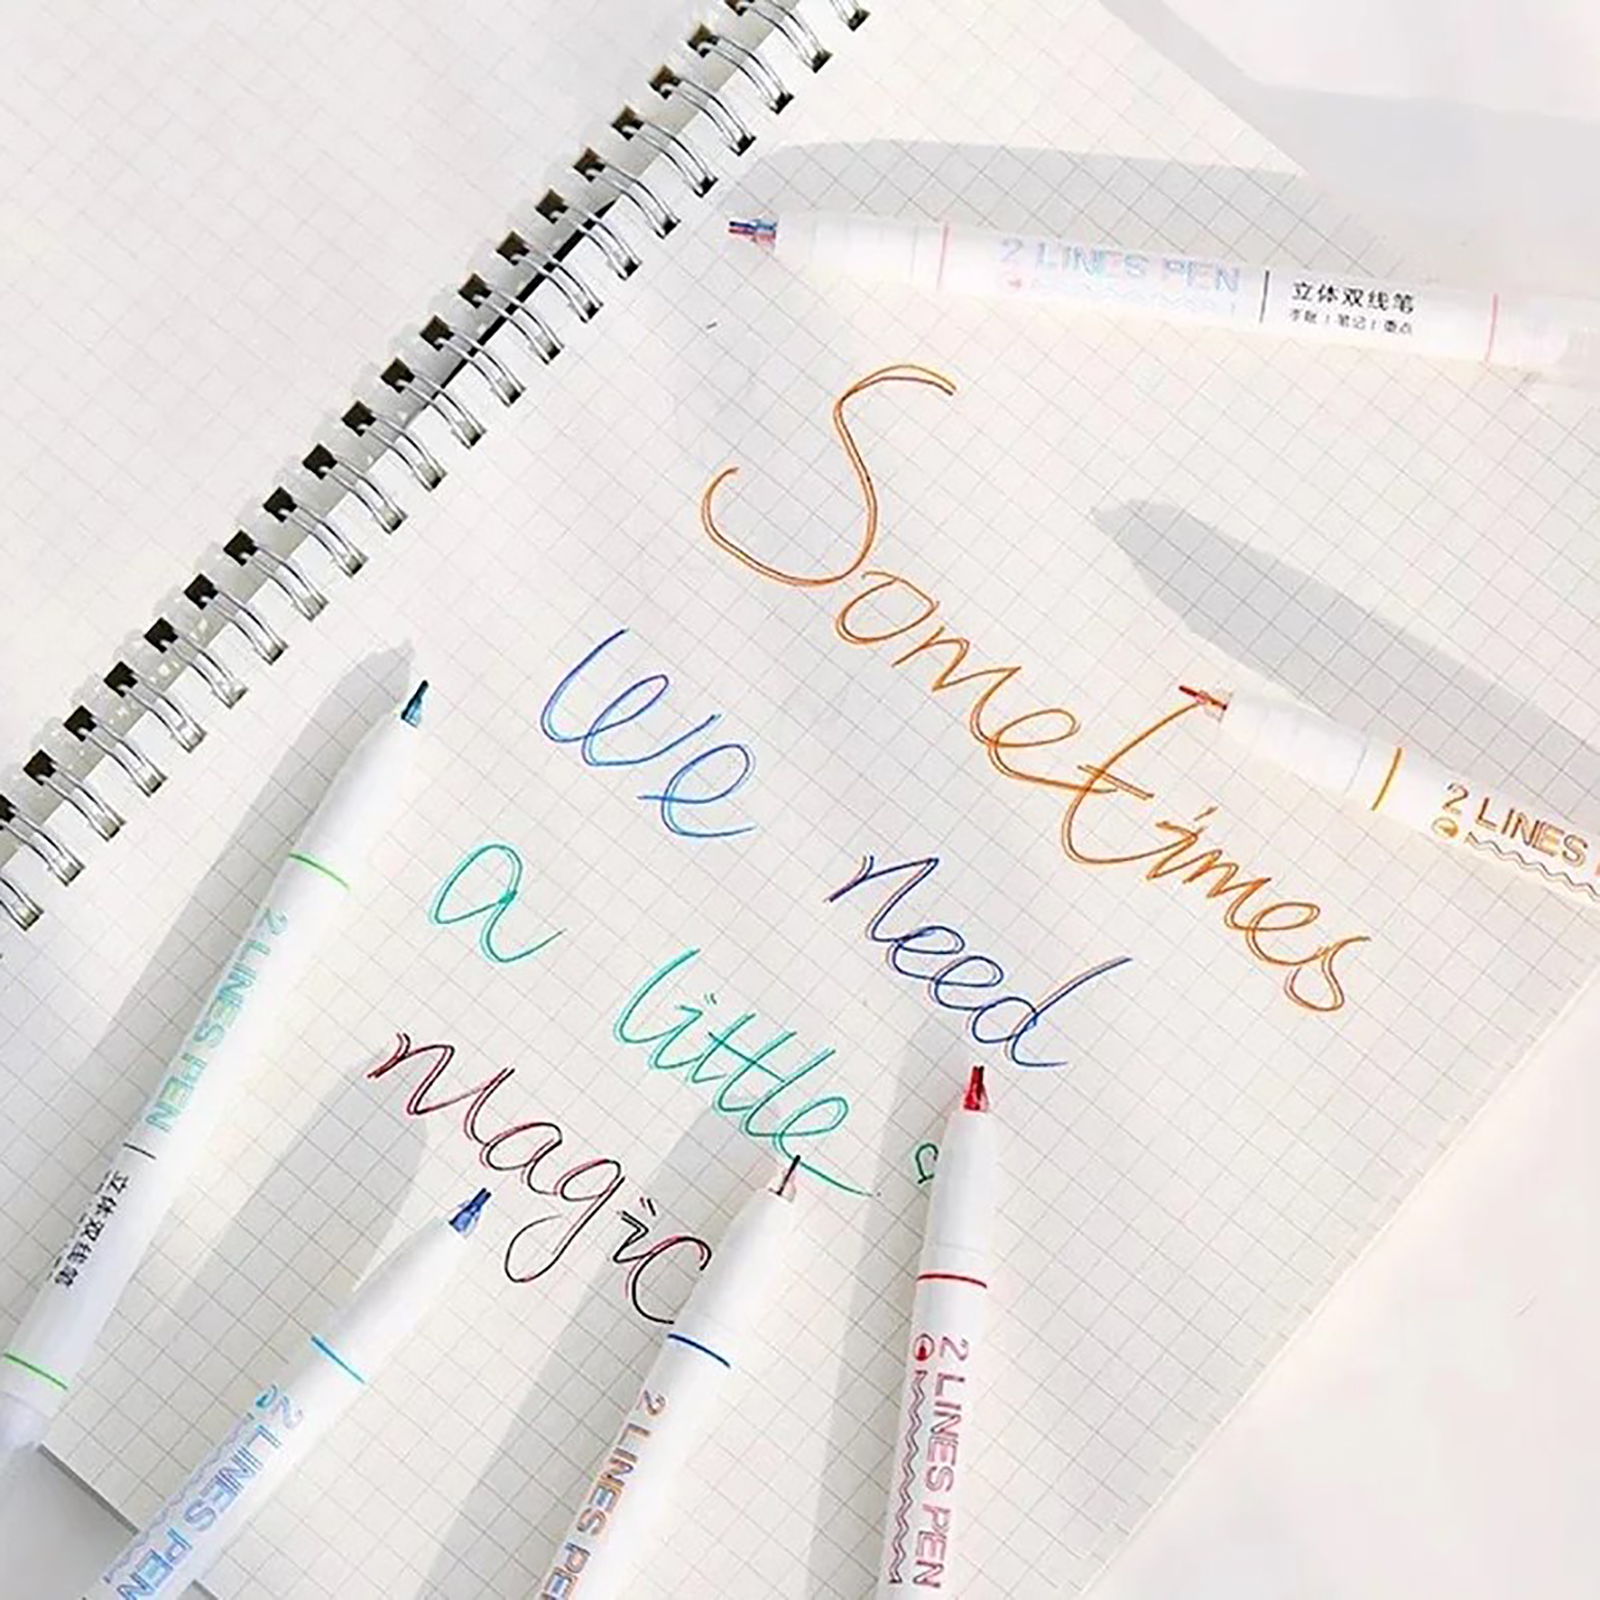 2 LINES PEN
立体双线笔
手账 | 笔记 | 重点
Sometimes
we need
a little
magic
2 LINES
2 LINES PEN
立体双线笔
2 LINES PEN
2 LINES PE
2 LINES PEN